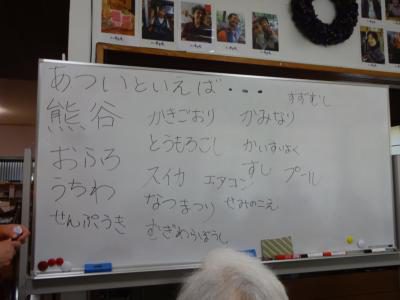 あついといえば・・・
すずむし
熊谷
かきごおり
かみなり
おふろ
とうもろこし
かいすいよく
うちわ
スイカ
エアコン
すし
プール
せんぷうき
なつまつり
せみのこえ
むぎわらぼうし